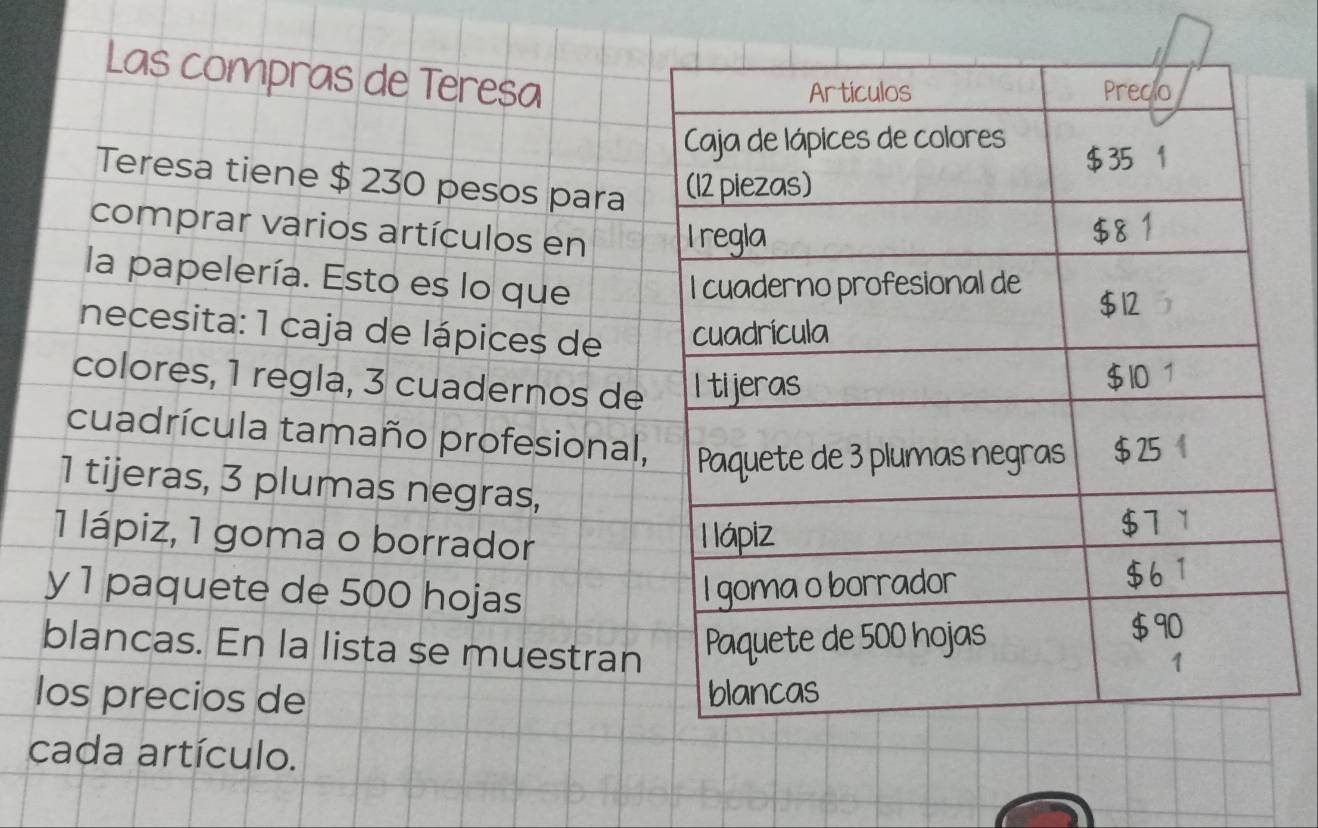 Las compras de Teresa
Teresa tiene $ 230 pesos para
comprar varios artículos en
la papelería. Esto es lo que
necesita: 1 caja de lápices de
colores, 1 regla, 3 cuadernos de
cuadrícula tamaño profesional,
1 tijeras, 3 plumas negras,
1 lápiz, 1 goma o borrador
y 1 paquete de 500 hojas
blancas. En la lista se muestran
los precios de
cada artículo.
Artículos Precio
Caja de lápices de colores
(12 piezas) $35 1
1 regla $8 1
1 cuaderno profesional de
cuadrícula $12 3
1 tijeras $10 1
Paquete de 3 plumas negras $25 1
1 lápiz $7 1
1 goma o borrador $6 1
Paquete de 500 hojas
blancas $90 1